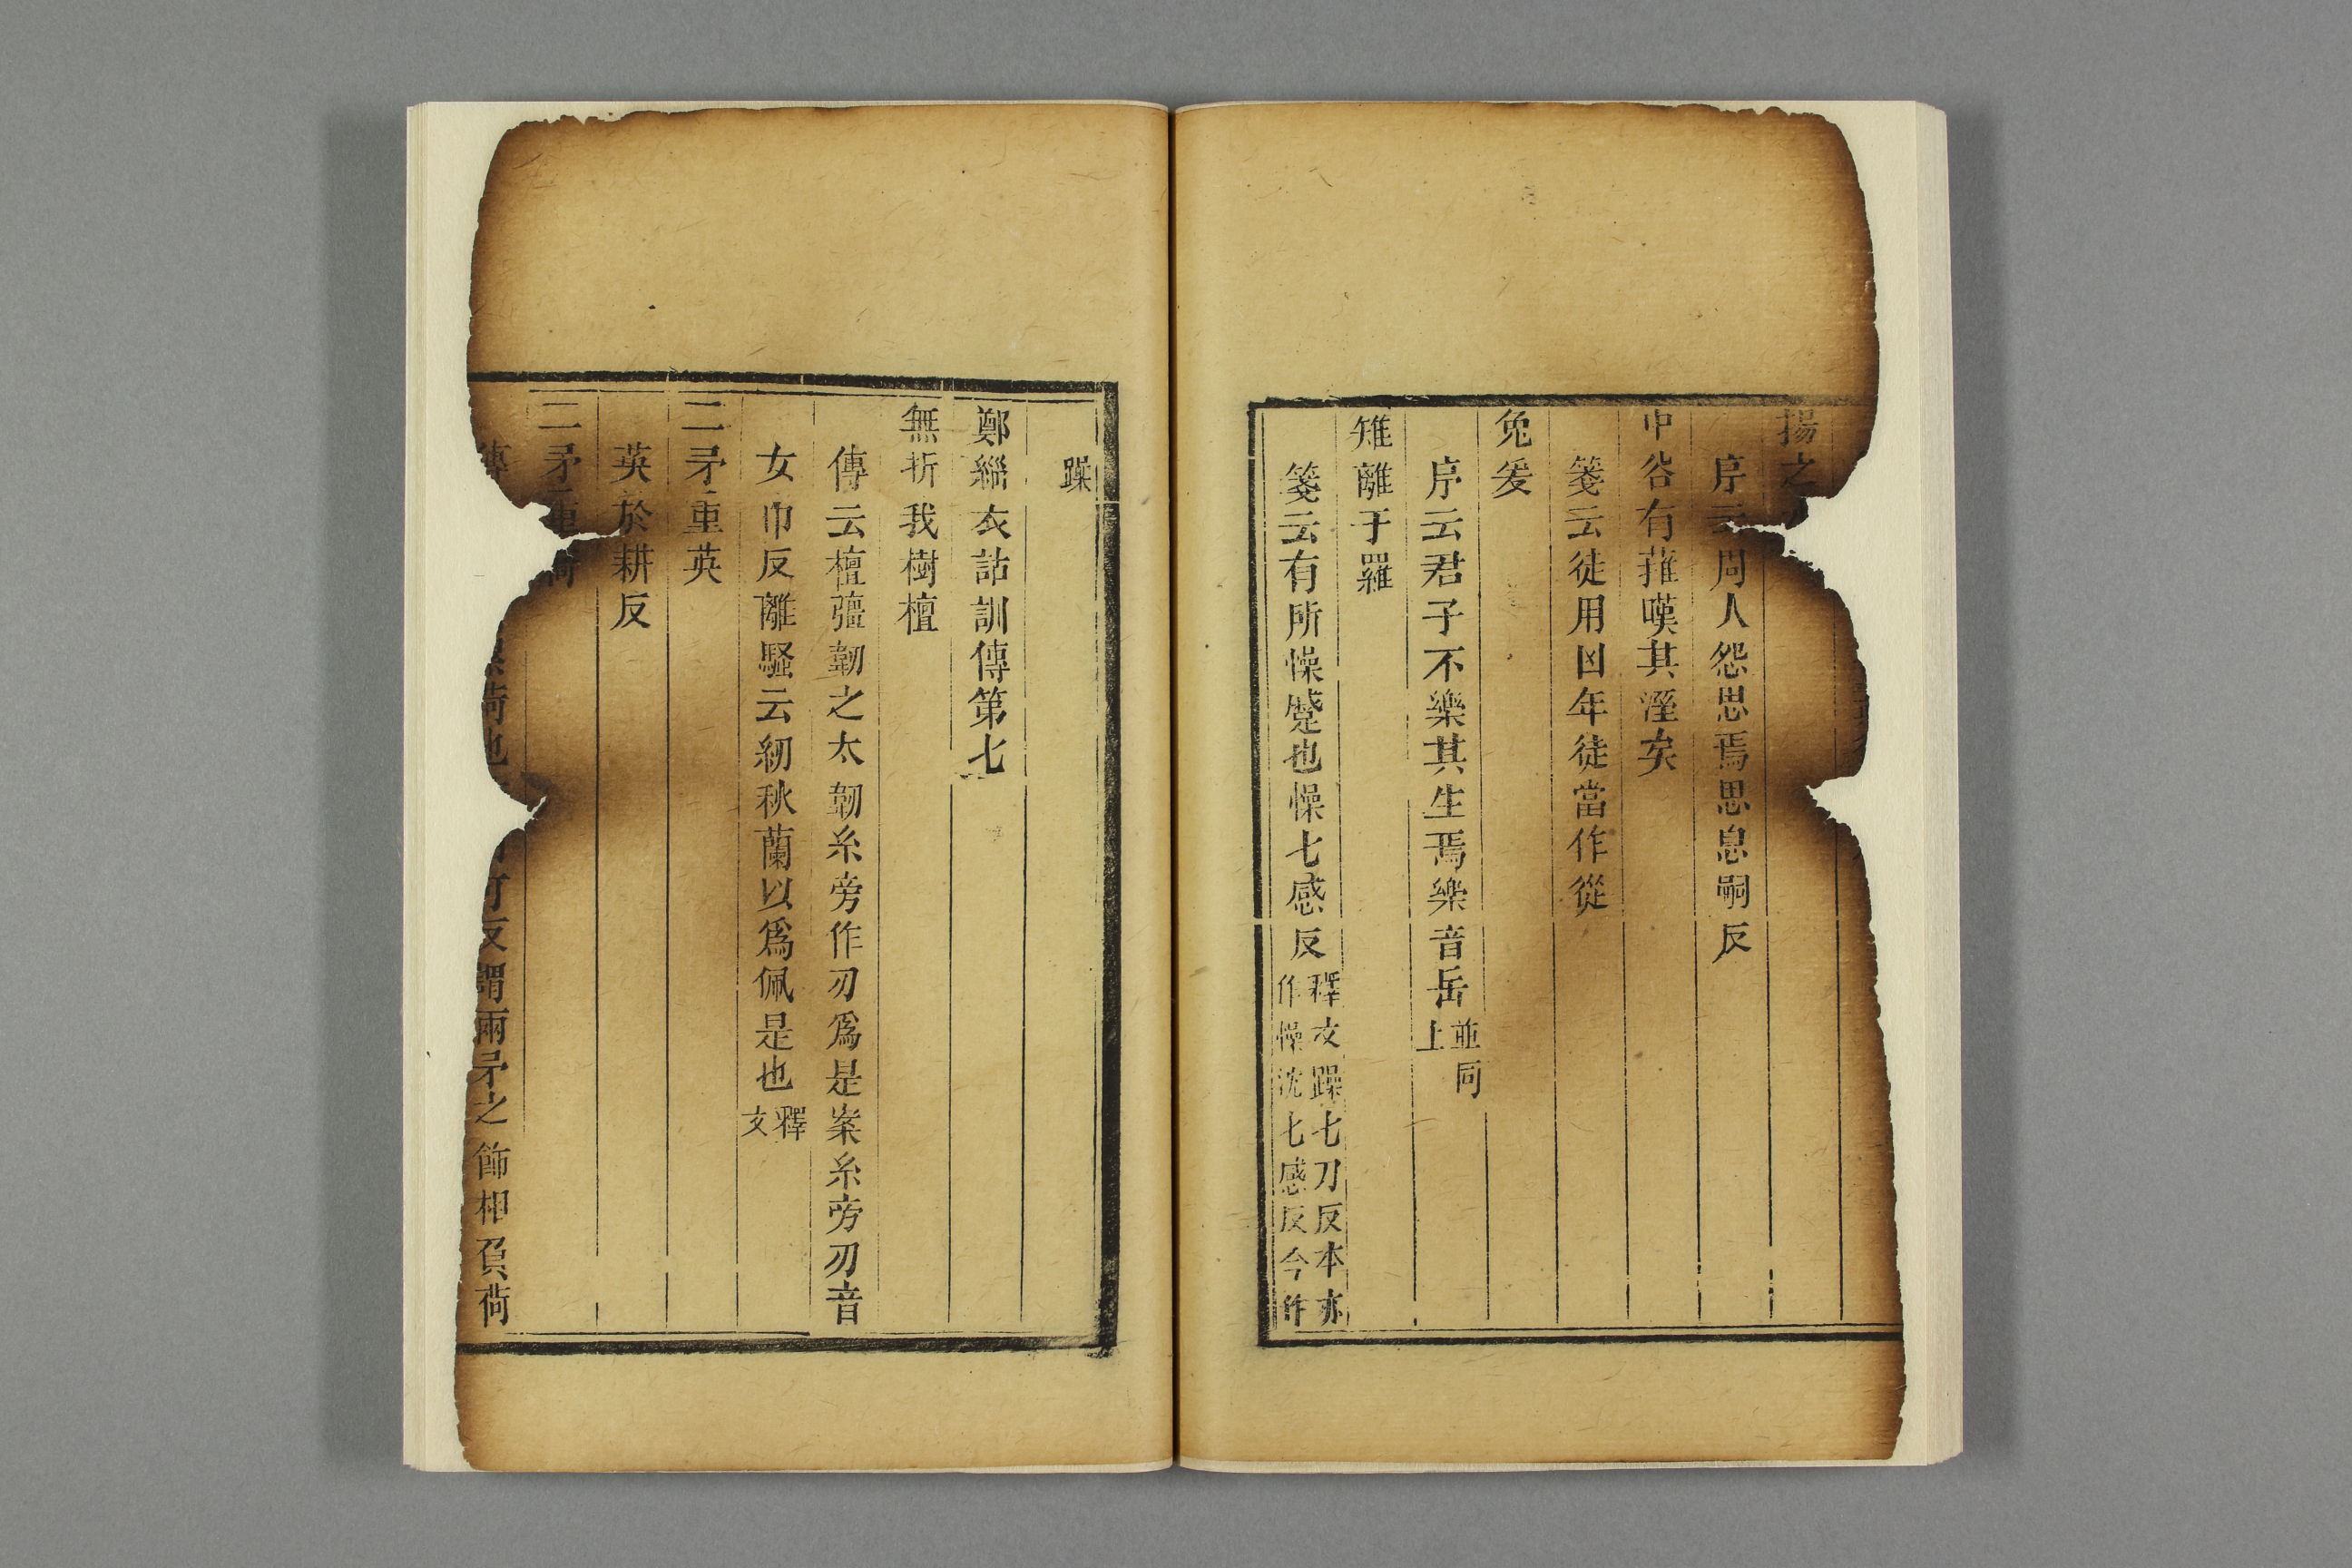 揚之
序云周人怨思焉思息嗣反
中谷有蓷嘆其溼矣
箋云徒用凶年徒當作從
兔爰
序云君子不樂其生焉樂音岳並同上
雉離于羅
箋云有所懆蹙也懆七感反釋文躁七刀反本亦作懆沈七感反今作
躁
鄭緇衣詁訓傳第七
無折我樹檀
傳云檀彊韌之木韌糸旁作刃爲是案糸旁刃音
女巾反離騷云紉秋蘭以爲佩是也釋文
二矛重英
英於耕反
二矛重
傳荷也可反謂兩矛之飾相負荷